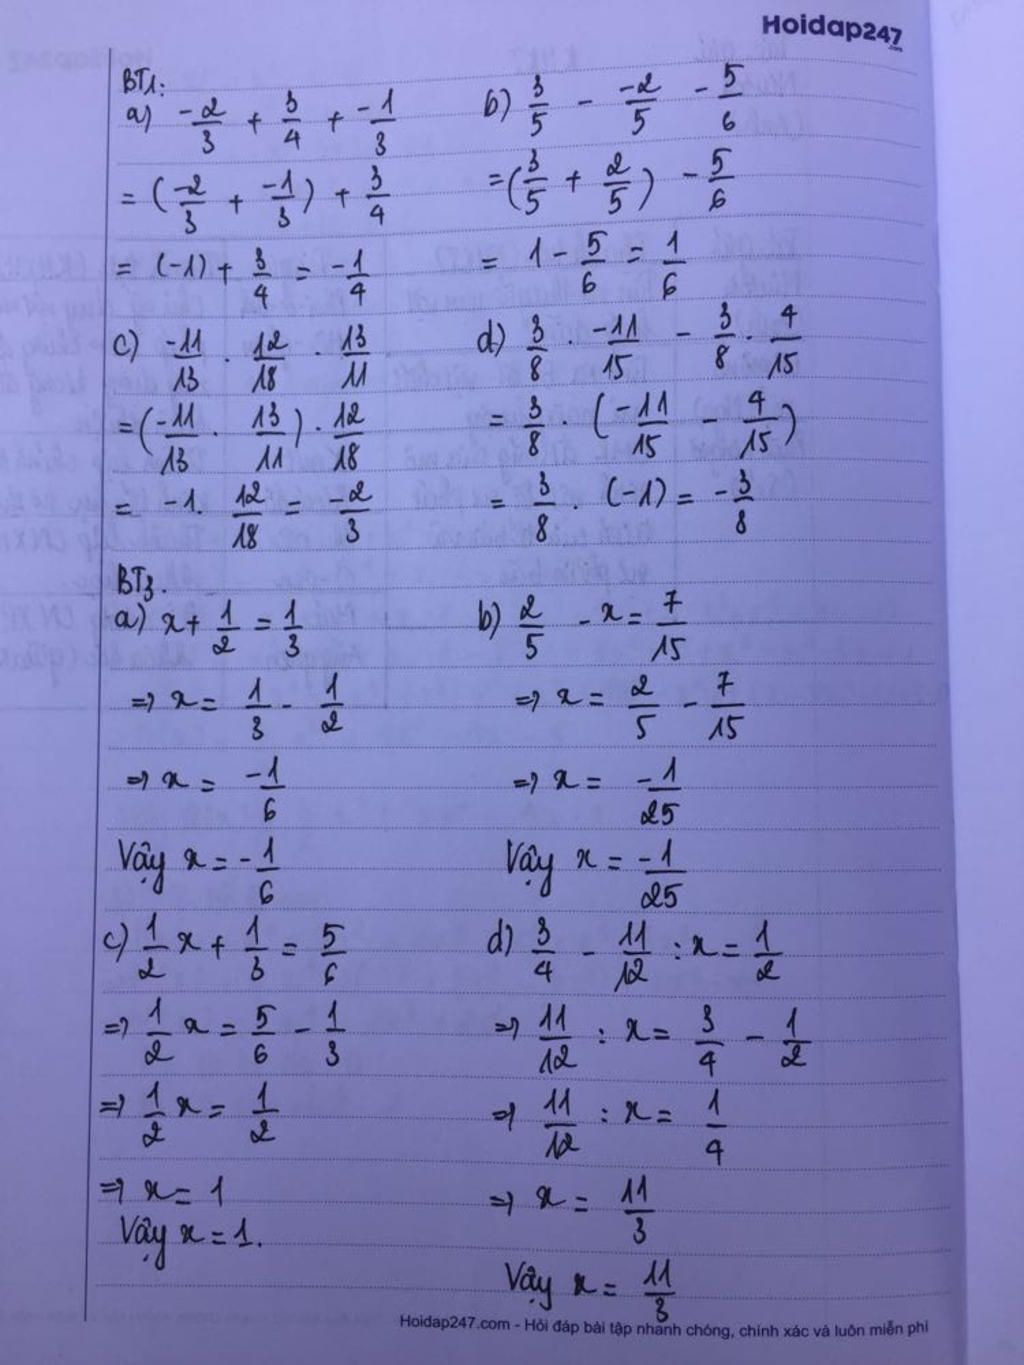 Hoidap247.com
BT1:
a) -2/3 + 3/4 + -1/3
= (-2/3 + -1/3) + 3/4
= (-1) + 3/4 = -1/4
b) 3/5 - -2/5 - 5/6
= (3/5 + 2/5) - 5/6
= 1 - 5/6 = 1/6
c) -11/13 . 12/18 . 13/11
= (-11/13 . 13/11) . 12/18
= -1 . 12/18 = -2/3
d) 3/8 . -11/15 - 3/8 . 4/15
= 3/8 . (-11/15 - 4/15)
= 3/8 . (-1) = -3/8
BT3.
a) x + 1/2 = 1/3
=> x = 1/3 - 1/2
=> x = -1/6
Vậy x = -1/6
b) 2/5 - x = 7/15
=> x = 2/5 - 7/15
=> x = -1/25
Vậy x = -1/25
c) 1/2 x + 1/3 = 5/6
=> 1/2 x = 5/6 - 1/3
=> 1/2 x = 1/2
=> x = 1
Vậy x = 1.
d) 3/4 - 11/12 : x = 1/2
=> 11/12 : x = 3/4 - 1/2
=> 11/12 : x = 1/4
=> x = 11/3
Vậy x = 11/3
Hoidap247.com - Hỏi đáp bài tập nhanh chóng, chính xác và luôn miễn phí